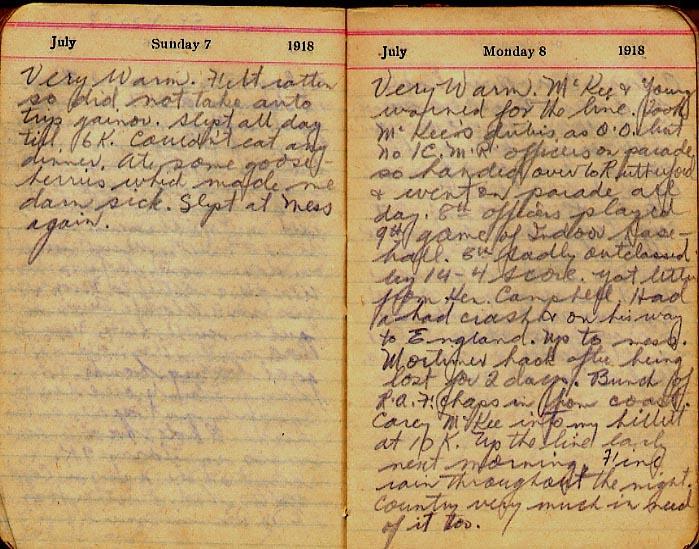 July Sunday 7 1918
Very Warm. Felt rotten
so did not take auto
trip gainor. Slept all day
till 6 K. Couldn't eat any
dinner. Ate some goose-
berries which made me
darn sick. Slept at Mess
again.
July Monday 8 1918
Very Warm. McKee & Young
warned for the line. Took
McKee's dutis as O.O. but
no 1C.M.R. officers on parade
so handed over to Rutherford
& went on parade all
day. 8th officers played
9th game of Indoor Base-
ball. 8th badly outclassed
by 14-4 score. Got letter
from Ken Campbell. Had
a bad crash on his way
to England. Up to mess.
Mortimer back after being
lost for 2 days. Bunch of
R.A.F. chaps in from coast.
Carey McKee into my billet
at 10 K. Up the line early
next morning. Fine
rain throughout the night.
Country very much in need
of it too.